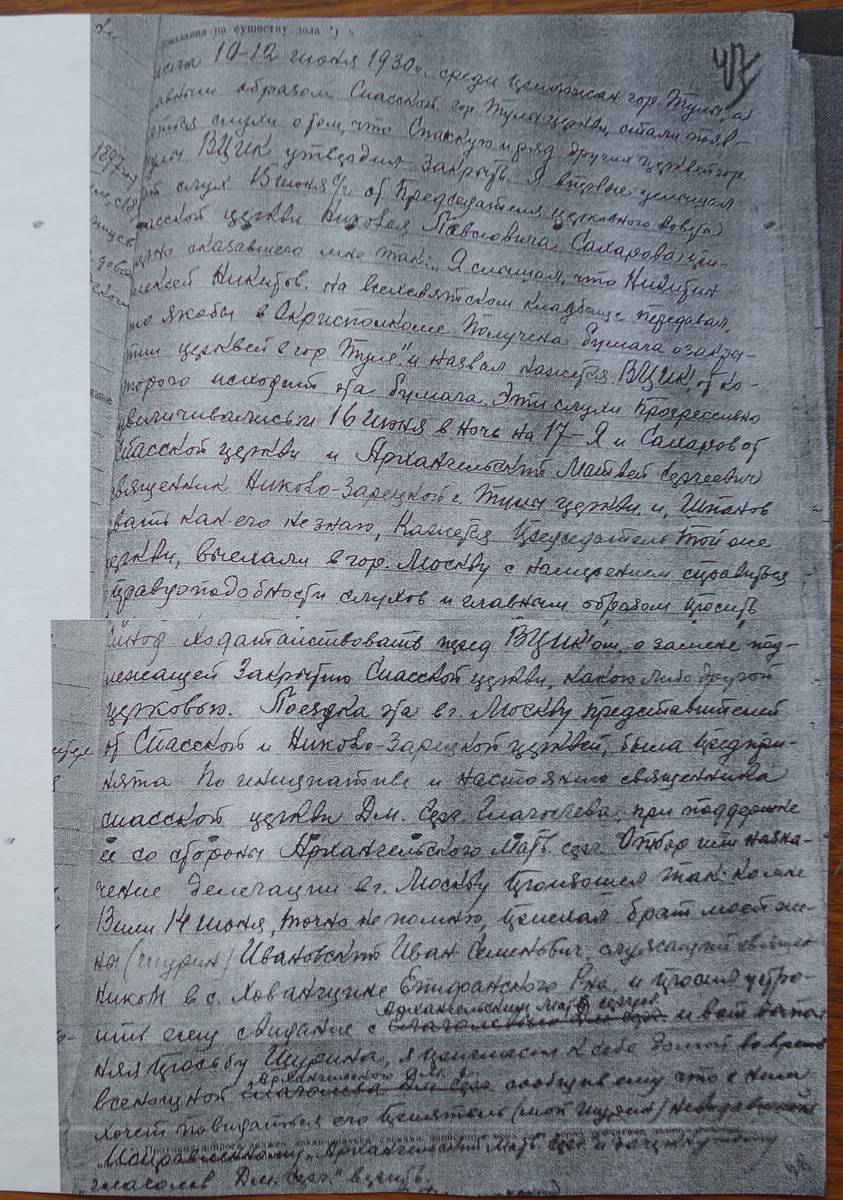 показания по существу дела
10–12 июня 1930 г. среди церковных гор. Тулы, а
главным образом Спасской гор. Тулы церкви, стали появ-
слухи о том, что Спасскую и ряд других церквей гор.
ВЦИК утвердил закрыть. Я впервые услышал
слух 15 июня с/г от Председателя церковного совета
Спасской церкви Николая Павловича Сахарова
сказавшего мне так: "Я слышал, что Никитин
Алексей Никитов. на всехсвятском кладбище передавал,
что якобы в Окрисполкоме получена бумага о закры-
тии церквей в гор. Туле" и назвал кажется ВЦИК, от ко-
торого исходит эта бумага. Эти слухи прогрессивно
увеличивались и 16 июня в ночь на 17 – Я и Сахаров от
Спасской церкви и Архангельский Матвей Сергеевич
священник Николо-Зарецкой г. Тулы церкви, и, Шпанов
звать как его не знаю, кажется Председатель той же
церкви, выехали в гор. Москву с намерением справиться
правдоподобности слухов и главным образом просить
Синод ходатайствовать перед ВЦИК'ом, о замене под-
лежащей закрытию Спасской церкви, какою либо другой
церковью. Поездка эта в г. Москву представителей
от Спасской и Николо-Зарецкой церквей, была предпри-
нята по инициативе и настоянию священника
спасской церкви Дм. Серг. Глаголева, при поддержке
ее со стороны Архангельского Матв. Серг. Отбор или назна-
чение делегации в г. Москву произошел так: ко мне
13 или 14 июня, точно не помню, приехал брат моей же-
ны (шурин) Ивановский Иван Семенович, служащий священ-
ником в с. Хованщине Епифанского Р-на, и просил устро-
Архангельским Матв. Серг.
ить ему свидание с Глаголевым Дм. Серг. и вот выпол-
няя просьбу шурина, я пригласил к себе домой во время
Архангельского
всенощной Глаголева Дм. Серг. сообщив ему что с ним
хочет повидаться его приятель (мой шурин)
"Исправленному Архангельский Матв. Серг. и зачеркнутому
"Глаголев Дм. Серг." верить.